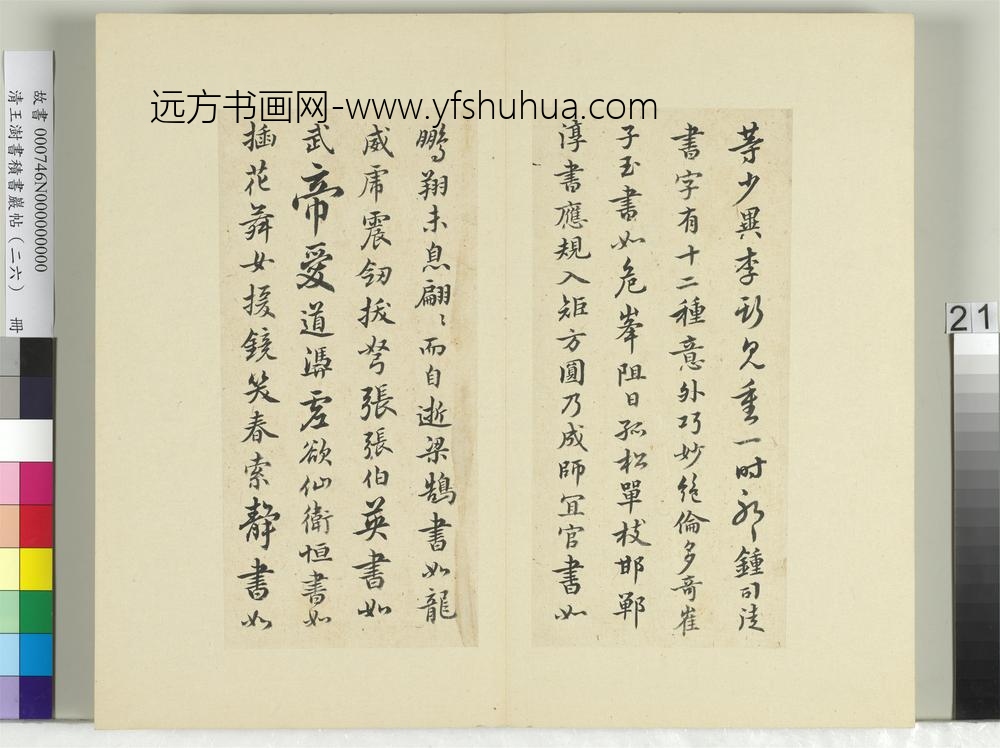 远方书画网-www.yfshuhua.com
等少異李斯見重一時耳鍾司徒
書字有十二種意外巧妙絕倫多奇崔
子玉書如危峯阻日孤松單枝邯鄲
淳書應規入矩方圓乃成師宜官書如
鵬翔未息翩〻而自逝梁鵠書如龍
威虎震劒拔弩張張伯英書如
武帝愛道馮虛欲仙衛恒書如
插花舞女援鏡笑春索靜書如
故書 000746N000000000
清王澍書積書巖帖(二六) 冊
21